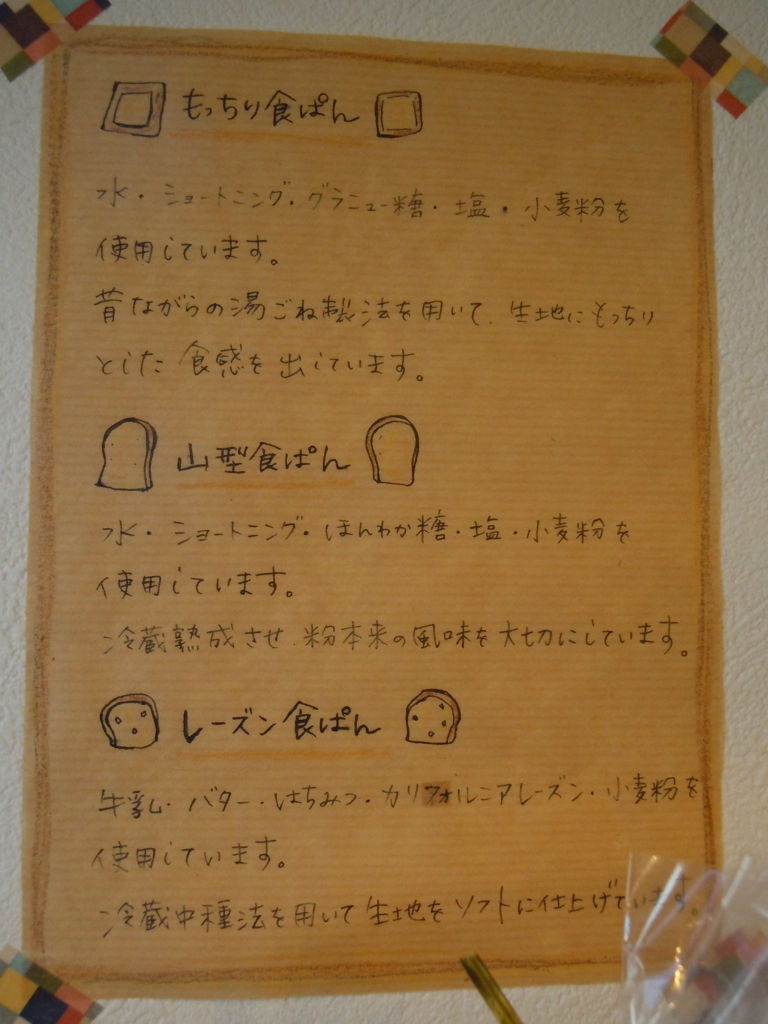 もっちり食ぱん
水・ショートニング・グラニュー糖・塩・小麦粉を
使用しています。
昔ながらの湯ごね製法を用いて、生地にもっちり
とした食感を出しています。
山型食ぱん
水・ショートニング・ほんわか糖・塩・小麦粉を
使用しています。
冷蔵熟成させ、粉本来の風味を大切にしています。
レーズン食ぱん
牛乳・バター・はちみつ・カリフォルニアレーズン・小麦粉を
使用しています。
冷蔵中種法を用いて生地をソフトに仕上げています。